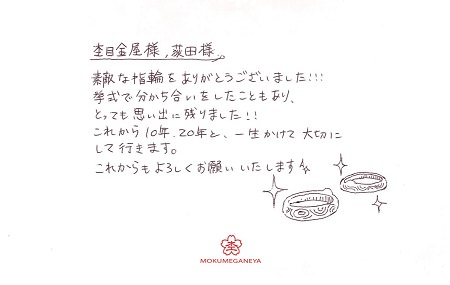 杢目金屋様, 荻田様。
素敵な指輪をありがとうございました!!!
挙式で分かち合いをしたこともあり、
とっても思い出に残りました!!
これから10年、20年と、一生かけて大切に
して行きます。
これからもよろしくお願いいたします
杢
MOKUMEGANEYA